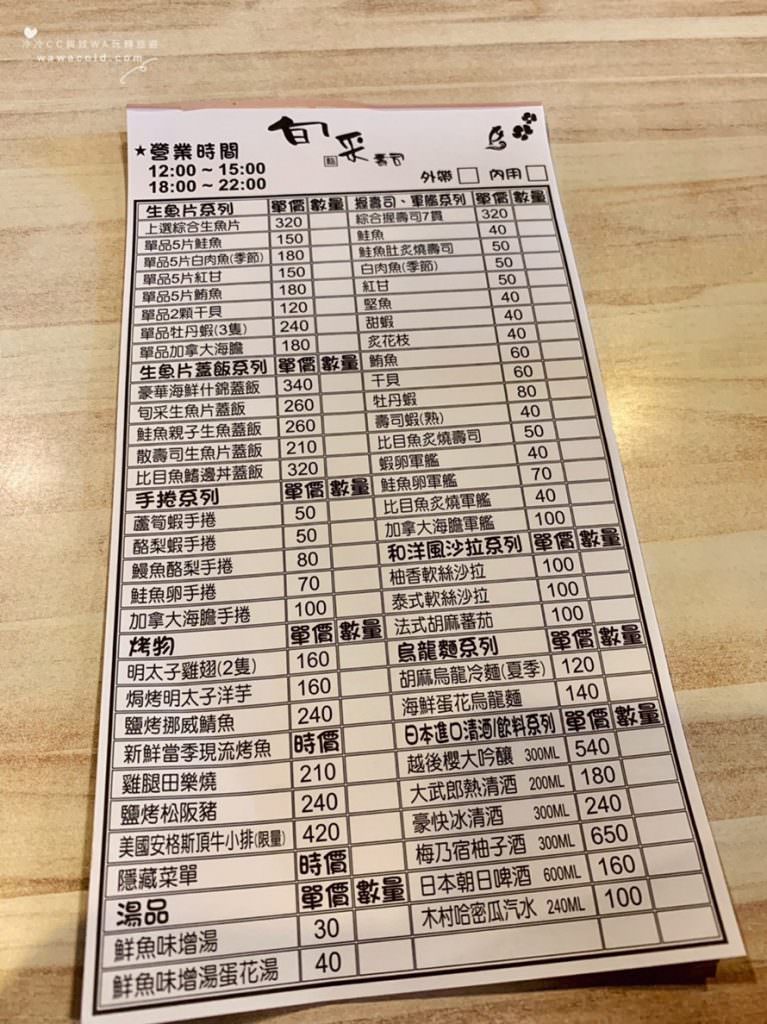 冷冷CC與娃WA玩轉旅遊
wawacold.com
旬采壽司
★營業時間
12:00 ~ 15:00
18:00 ~ 22:00
外帶 內用
生魚片系列 單價 數量
上選綜合生魚片 320
單品5片鮭魚 150
單品5片白肉魚(季節) 180
單品5片紅甘 150
單品5片鮪魚 180
單品2顆干貝 120
單品牡丹蝦(3隻) 240
單品加拿大海膽 180
生魚片蓋飯系列 單價 數量
豪華海鮮什錦蓋飯 340
旬采生魚片蓋飯 260
鮭魚親子生魚蓋飯 260
散壽司生魚片蓋飯 210
比目魚鰭邊丼蓋飯 320
手捲系列 單價 數量
蘆筍蝦手捲 50
酪梨蝦手捲 50
鰻魚酪梨手捲 80
鮭魚卵手捲 70
加拿大海膽手捲 100
烤物 單價 數量
明太子雞翅(2隻) 160
焗烤明太子洋芋 160
鹽烤挪威鯖魚 240
新鮮當季現流烤魚 時價
雞腿田樂燒 210
鹽烤松阪豬 240
美國安格斯頂牛小排(限量) 420
隱藏菜單 時價
湯品 單價 數量
鮮魚味增湯 30
鮮魚味增湯蛋花湯 40
握壽司、軍艦系列 單價 數量
綜合握壽司7貫 320
鮭魚 40
鮭魚肚炙燒壽司 50
白肉魚(季節) 50
紅甘 50
堅魚 40
甜蝦 40
炙花枝 40
鮪魚 60
干貝 60
牡丹蝦 80
壽司蝦(熟) 40
比目魚炙燒壽司 50
蝦卵軍艦 40
鮭魚卵軍艦 70
比目魚炙燒軍艦 40
加拿大海膽軍艦 100
和洋風沙拉系列 單價 數量
柚香軟絲沙拉 100
泰式軟絲沙拉 100
法式胡麻蕃茄 100
烏龍麵系列 單價 數量
胡麻烏龍冷麵(夏季) 120
海鮮蛋花烏龍麵 140
日本進口清酒/飲料系列 單價 數量
越後櫻大吟釀 300ML 540
大武郎熱清酒 200ML 180
豪快冰清酒 300ML 240
梅乃宿柚子酒 300ML 650
日本朝日啤酒 600ML 160
木村哈密瓜汽水 240ML 100